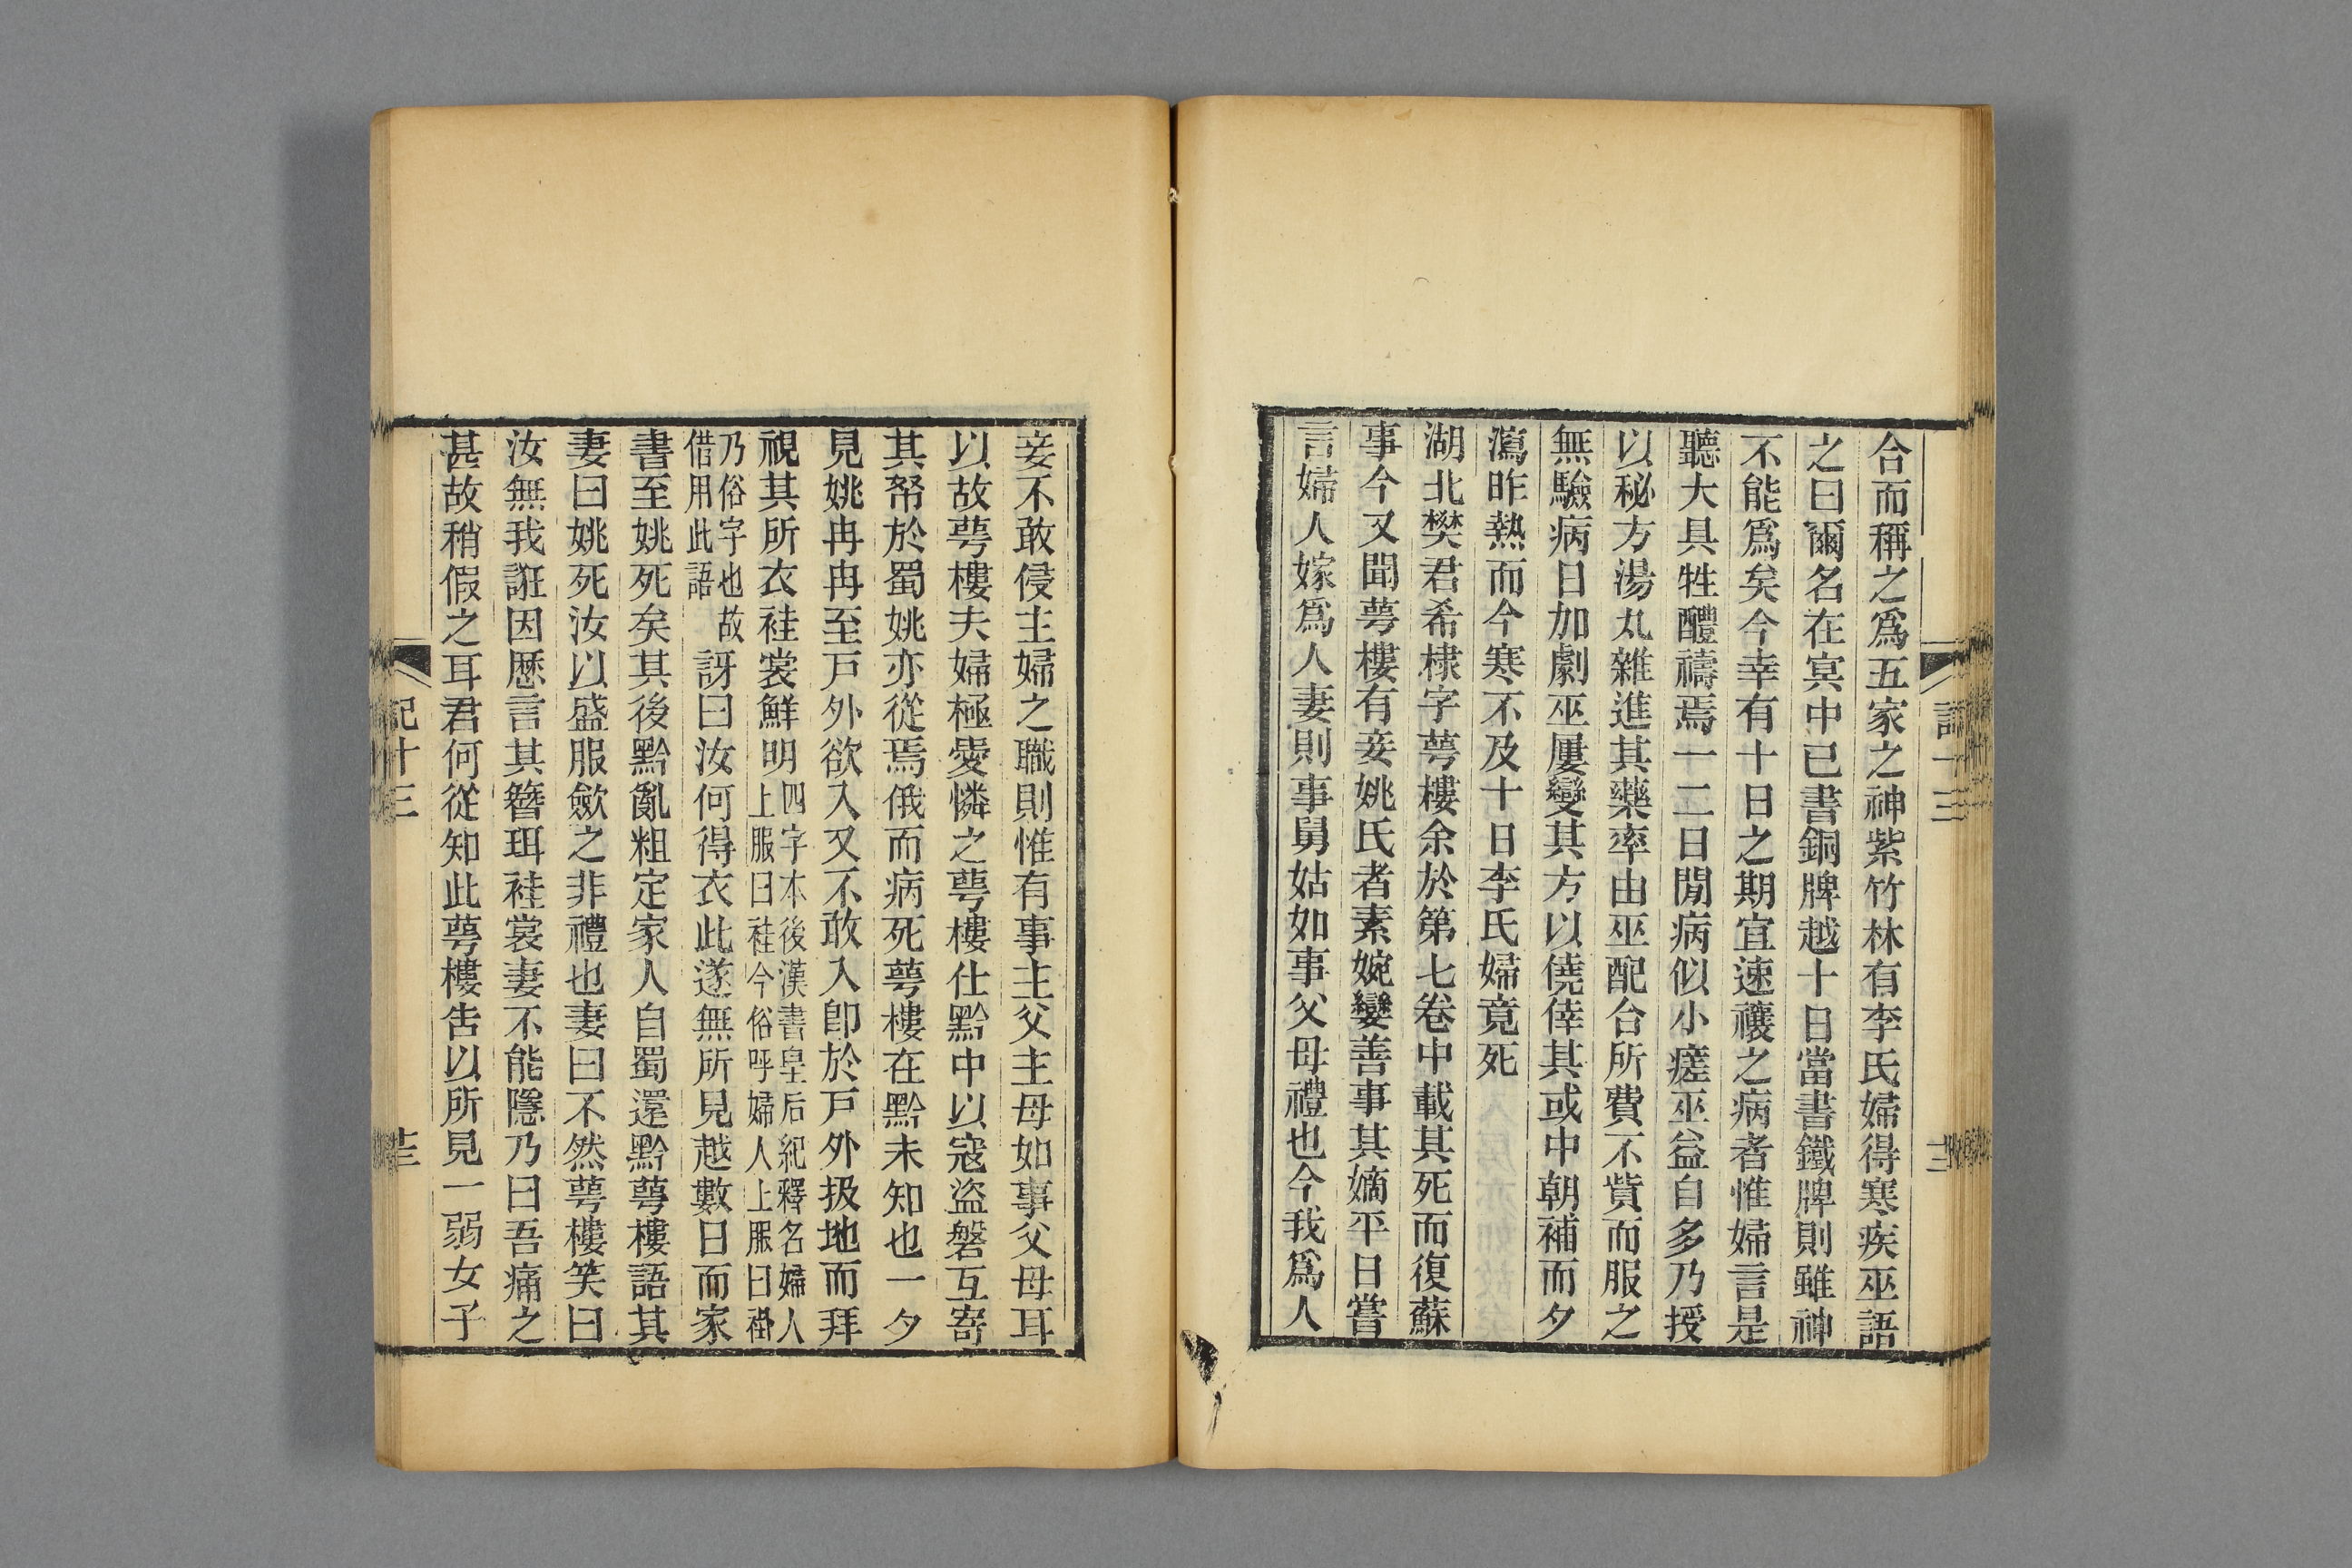 合而稱之爲五家之神紫竹林有李氏婦得寒疾巫語
之曰爾名在冥中已書銅牌越十日當書鐵牌則雖神
不能爲矣今幸有十日之期宜速禳之病者惟婦言是
聽大具牲醴禱焉一二日閒病似小瘥巫益自多乃授
以秘方湯丸雜進其藥率由巫配合所費不貲而服之
無驗病日加劇巫屢變其方以僥倖其或中朝補而夕
瀉昨熱而今寒不及十日李氏婦竟死
湖北樊君希棣字萼樓余於第七卷中載其死而復蘇
事今又聞萼樓有妾姚氏者素婉孌善事其嫡平日嘗
言婦人嫁爲人妻則事舅姑如事父母禮也今我爲人
妾不敢侵主婦之職則惟有事主父主母如事父母耳
以故萼樓夫婦極愛憐之萼樓仕黔中以寇盜磐互寄
其帑於蜀姚亦從焉俄而病死萼樓在黔未知也一夕
見姚冉冉至戸外欲入又不敢入卽於戸外扱地而拜
視其所衣袿裳鮮明四字本後漢書皇后紀釋名婦人
上服曰袿今俗呼婦人上服曰褂
乃俗字也故
借用此語訝曰汝何得衣此遂無所見越數日而家
書至姚死矣其後黔亂粗定家人自蜀還黔萼樓語其
妻曰姚死汝以盛服歛之非禮也妻曰不然萼樓笑曰
汝無我誑因歴言其簪珥袿裳妻不能隱乃曰吾痛之
甚故稍假之耳君何從知此萼樓告以所見一弱女子
記十三
十三